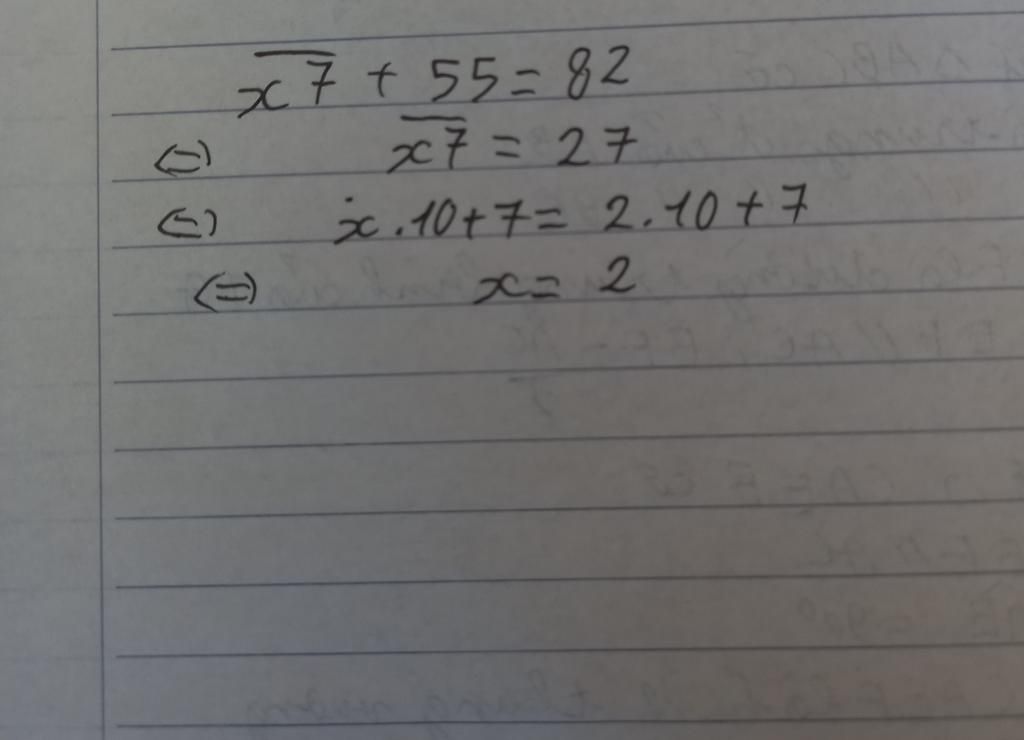 x̅7̅ + 55 = 82
<=> x̅7̅ = 27
<=> x.10+7 = 2.10+7
<=> x = 2